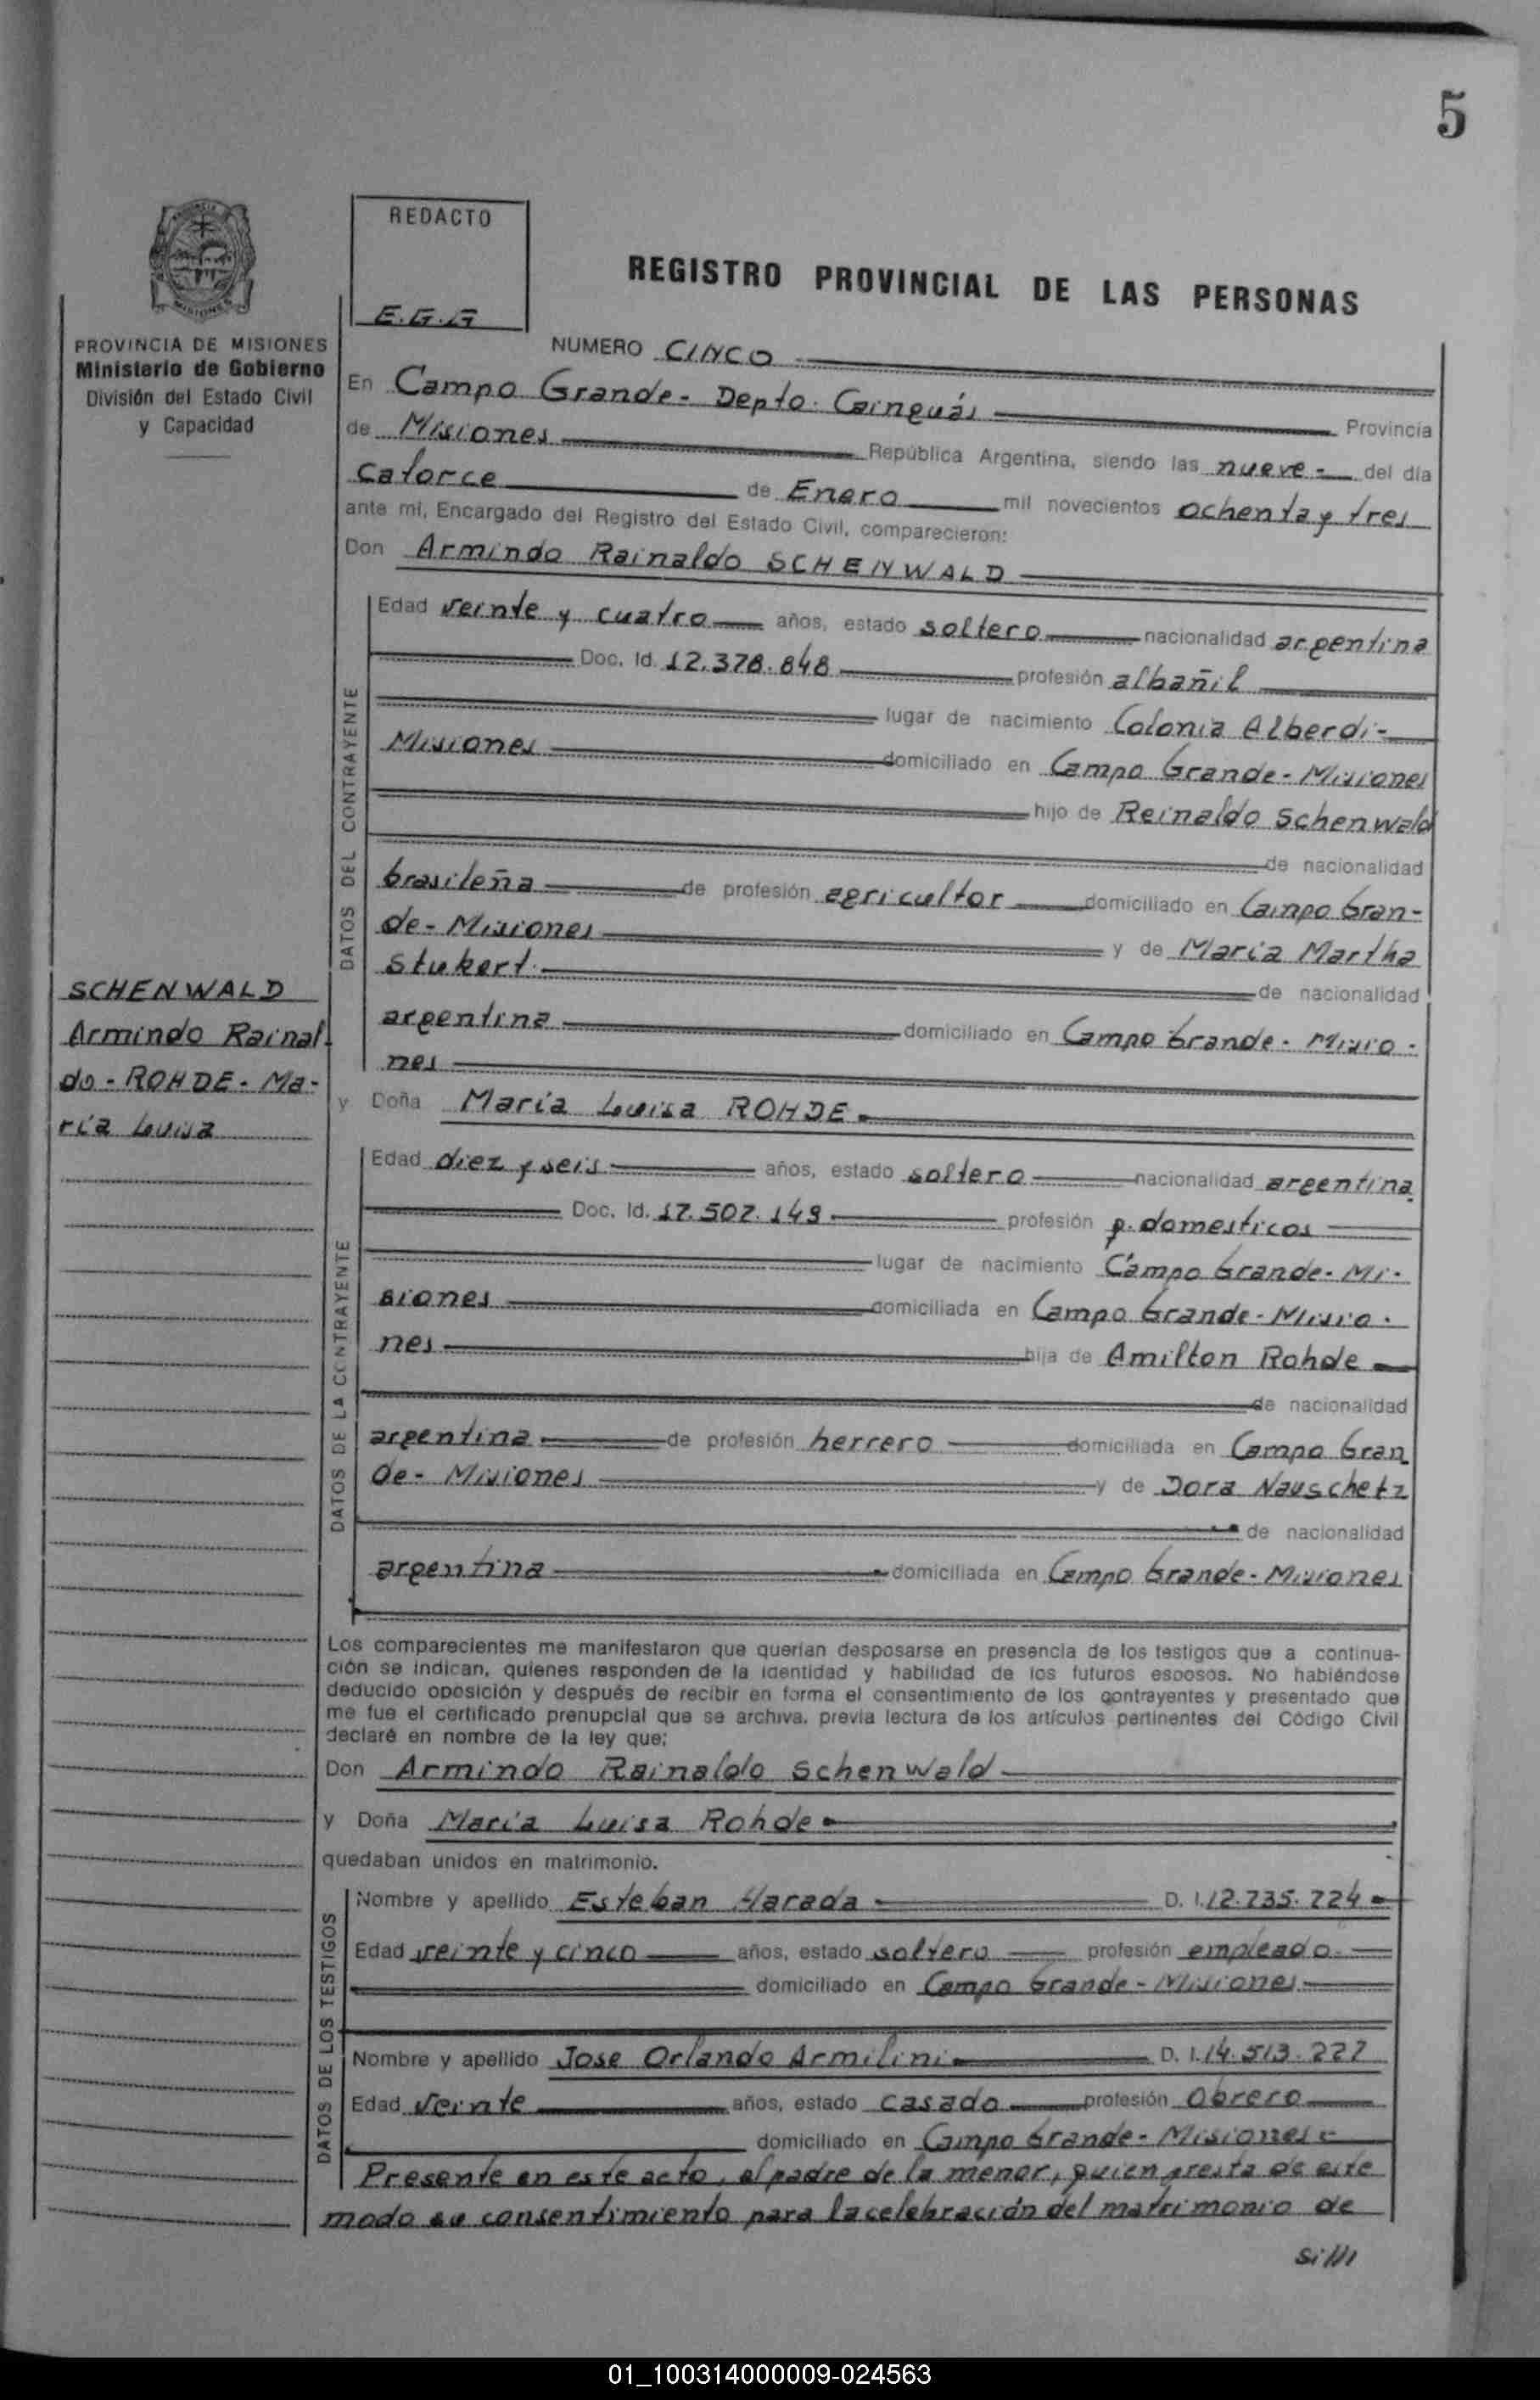 5
REDACTO
E.G.G
REGISTRO PROVINCIAL DE LAS PERSONAS
PROVINCIA DE MISIONES
Ministerio de Gobierno
División del Estado Civil
y Capacidad
NUMERO CINCO
En Campo Grande- Depto. Cainguás Provincia
de Misiones República Argentina, siendo las nueve- del día
catorce de Enero mil novecientos ochenta y tres
ante mí, Encargado del Registro del Estado Civil, comparecieron:
Don Armindo Rainaldo SCHENWALD
DATOS DEL CONTRAYENTE
Edad veinte y cuatro años, estado soltero nacionalidad argentina
Doc. Id. 12.378.848 profesión albañil
lugar de nacimiento Colonia Alberdi-
Misiones domiciliado en Campo Grande-Misiones
hijo de Reinaldo Schenwald
de nacionalidad
brasileña de profesión agricultor domiciliado en Campo Gran-
de- Misiones y de María Martha
Stukert. de nacionalidad
argentina domiciliado en Campo Grande- Misio-
nes
SCHENWALD
Armindo Rainal-
do- ROHDE- Ma-
ría Luisa
y Doña María Luisa ROHDE-
DATOS DE LA CONTRAYENTE
Edad diez y seis años, estado soltero nacionalidad argentina
Doc. Id. 17.502.149 profesión q.domesticos
lugar de nacimiento Campo Grande- Mi-
siones domiciliada en Campo Grande-Misio-
nes hija de Amilton Rohde
de nacionalidad
argentina de profesión herrero domiciliada en Campo Gran
de- Misiones y de Dora Nauschetz
de nacionalidad
argentina domiciliada en Campo Grande-Misiones
Los comparecientes me manifestaron que querían desposarse en presencia de los testigos que a continua-
ción se indican, quienes responden de la identidad y habilidad de los futuros esposos. No habiéndose
deducido oposición y después de recibir en forma el consentimiento de los contrayentes y presentado que
me fue el certificado prenupcial que se archiva, previa lectura de los artículos pertinentes del Código Civil
declaré en nombre de la ley que:
Don Armindo Rainaldo Schenwald
y Doña María Luisa Rohde
quedaban unidos en matrimonio.
DATOS DE LOS TESTIGOS
Nombre y apellido Esteban Harada D. I. 12.735.724
Edad veinte y cinco años, estado soltero profesión empleado
domiciliado en Campo Grande-Misiones
Nombre y apellido Jose Orlando Armilini D. I. 14.513.227
Edad veinte años, estado casado profesión obrero
domiciliado en Campo Grande- Misiones
Presente en este acto, el padre de la menor, quien presta de este
modo su consentimiento para la celebración del matrimonio de
si///
01_100314000009-024563